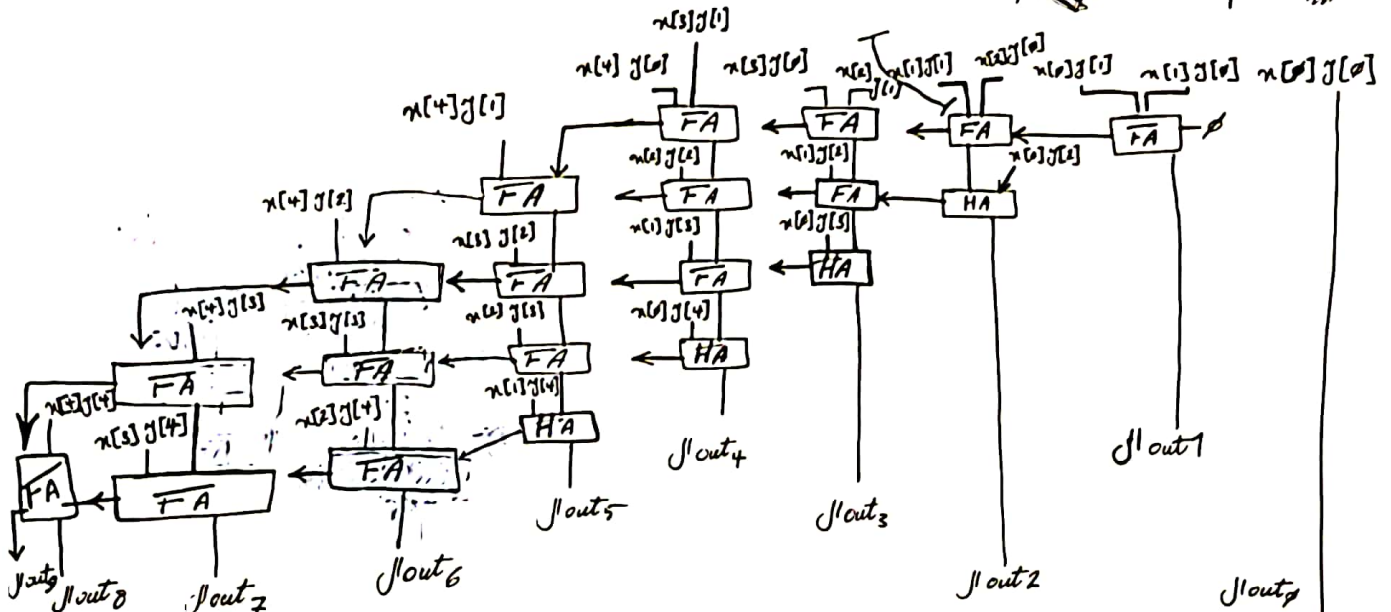 x[3]y[1]
x[4] y[0] x[3]y[0] x[2] y[1] x[1]y[1] x[2]y[0] x[0]y[1] x[1]y[0] x[0] y[0]
x[4]y[1] FA FA FA FA 0
x[2]y[2] x[1]y[2] x[0]y[2]
x[4] y[2] FA FA FA HA
x[3] y[2] x[1]y[3] x[0]y[3]
FA FA FA HA
x[4]y[3] x[3]y[3] x[2]y[3] x[0]y[4]
FA FA FA HA
x[4]y[4] x[3] y[4] x[2]y[4] x[1]y[4]
HA
FA FA FA
out4 out1
out5 out3
out9 out8 out7 out6 out2 out0